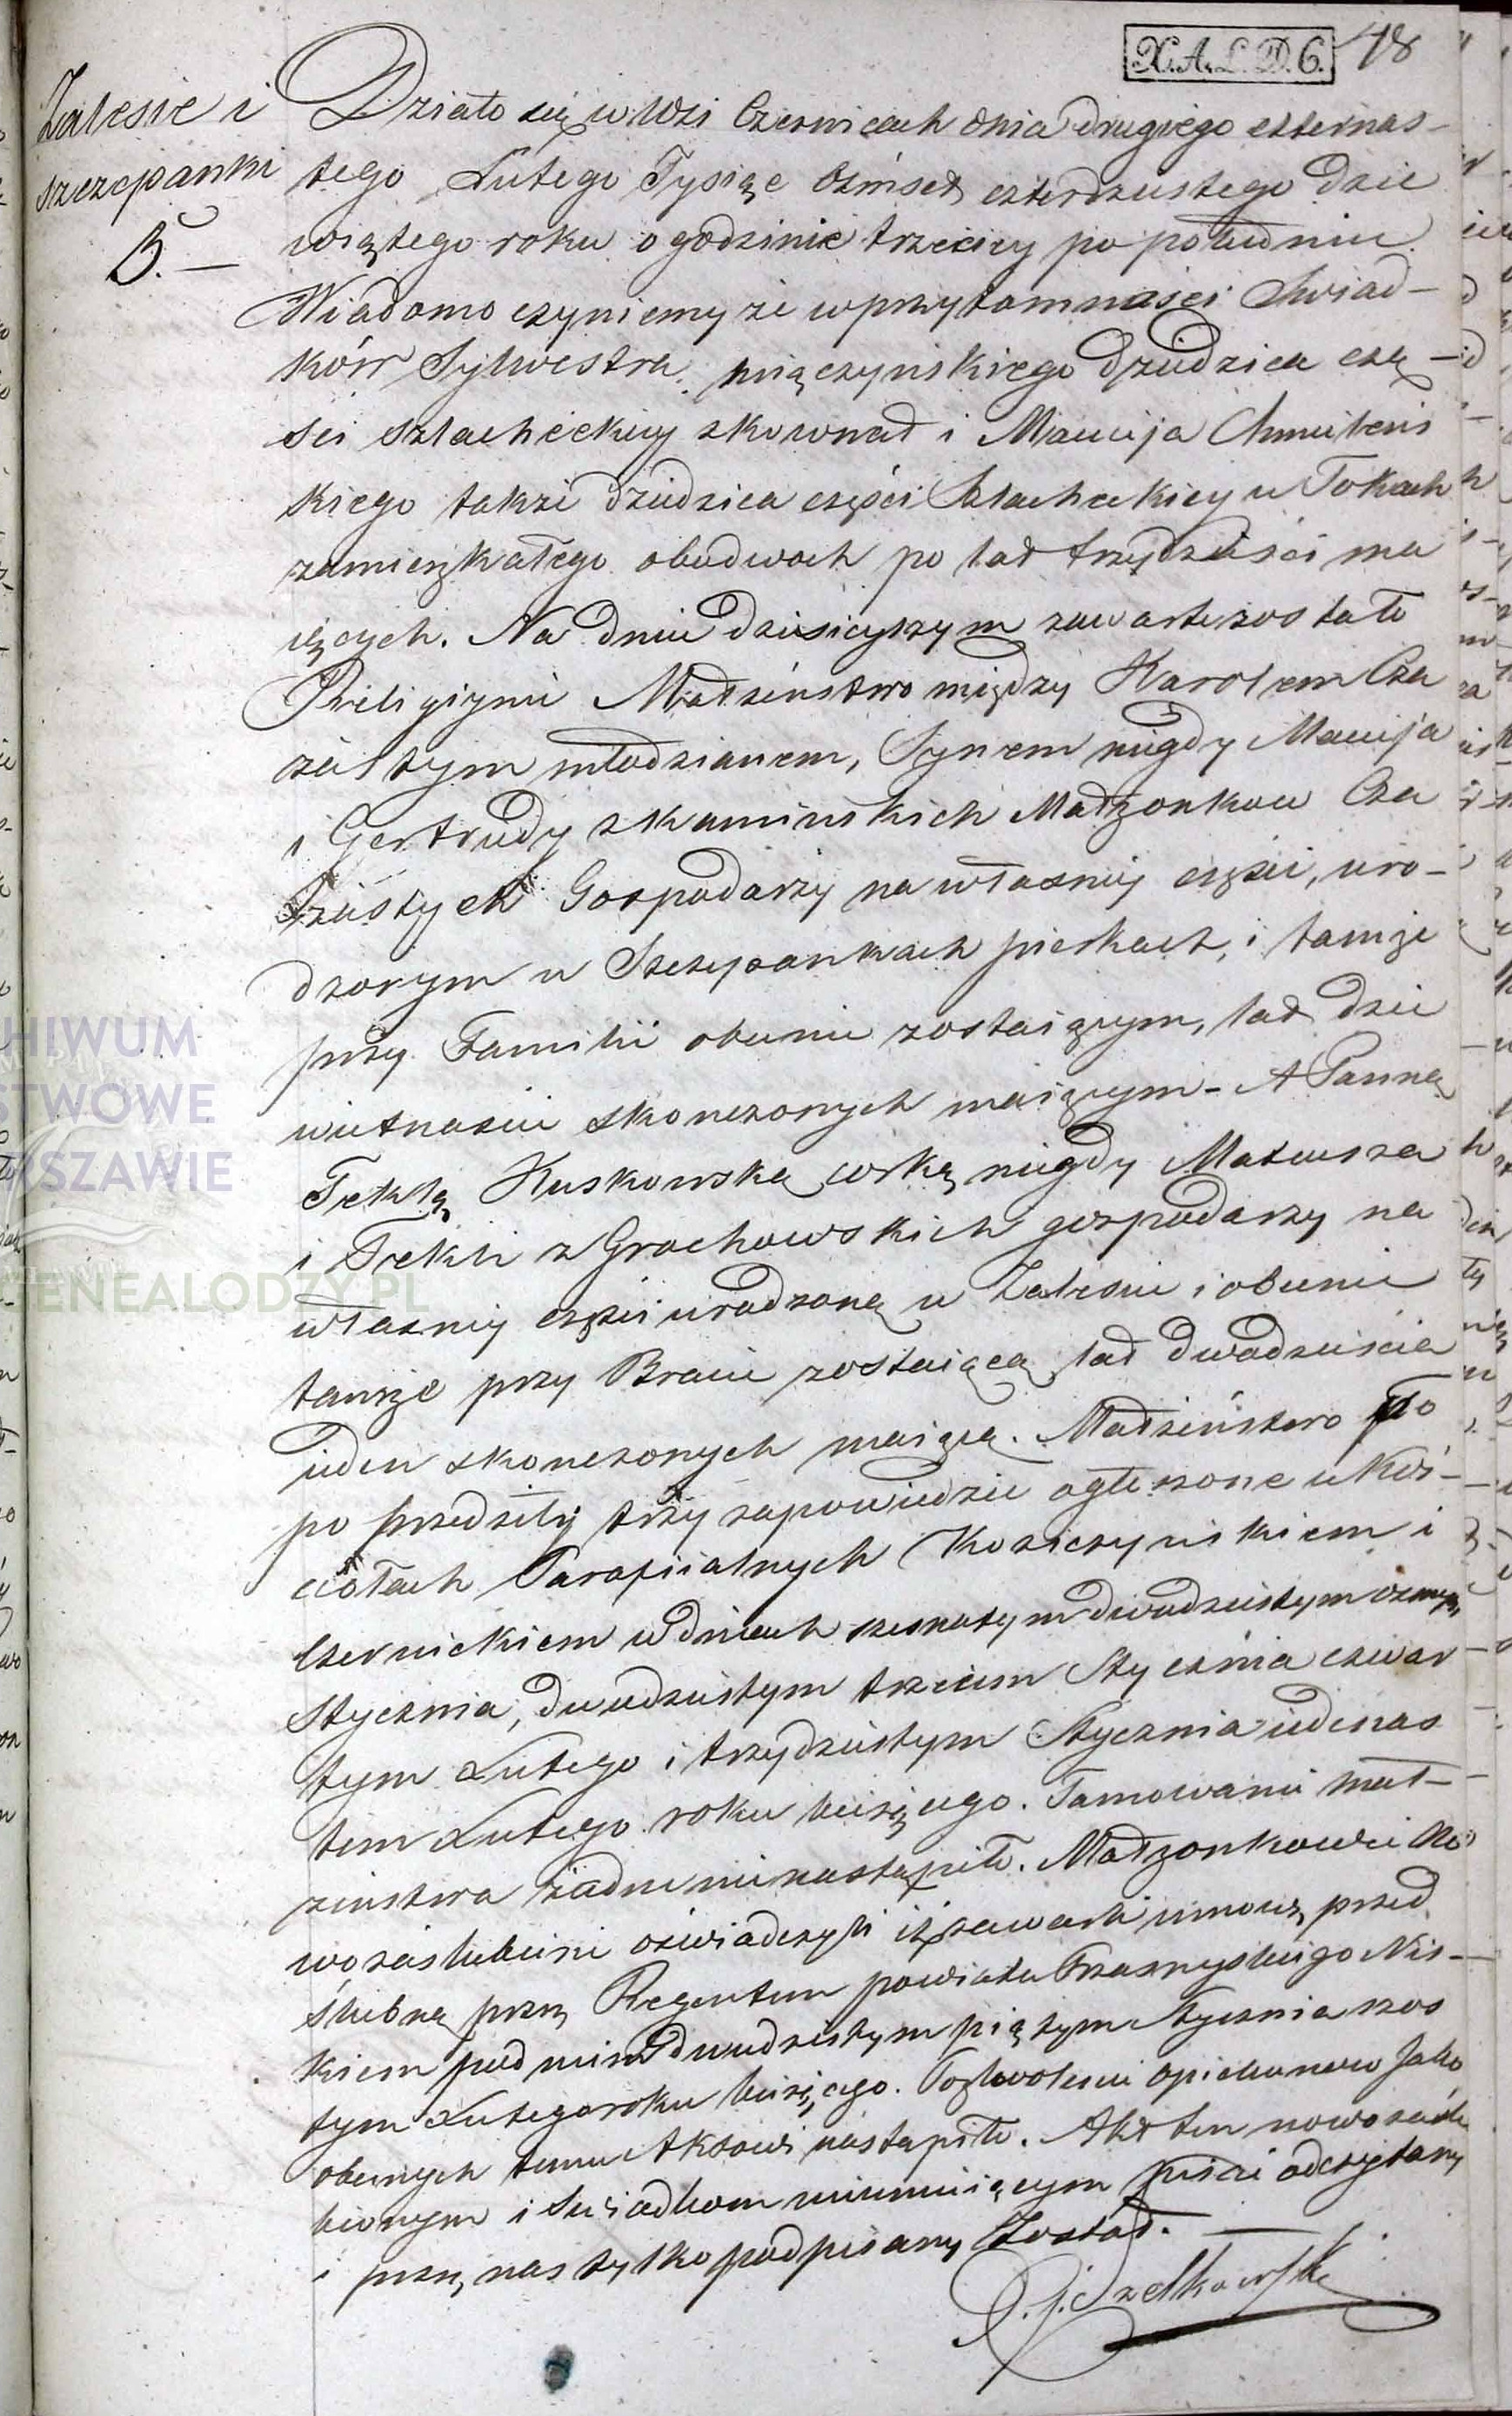 X.A.L.D.C. 48
Zalesie i
Szczepanki
5.—
Działo się w Wsi Czernicach dnia drugiego czternas-
tego Lutego Tysiąc Ośmset czterdziestego dzie
wiątego roku o godzinie trzeciey po południu
Wiadomo czyniemy że w przytomności Świad-
ków Sylwestra Miączyńskiego dziedzica czę-
ści szlacheckiey zkownat i Macieja Chmielews
kiego także dziedzica części Szlacheckiey w Tokach
zamieszkałego obudwoch po lat trzydzieści ma
iących. Na dniu dzisieyszym zawarte zostało
Religiyne Małżeństwo między Karolem Cza
żastym młodzianem, Synem niegdy Macieja
i Gertrudy z Kamińskich Małżonkow Cza
żastych Gospodarzy na własney części, uro-
dzonym w Szczepankach pieskach, i tamże
przy Familii obecnie zostaiącym, lat dzie
wietnaście skonczonych maiącym - A Panną
Teklą Kuskowską corką niegdy Mateusza
i Tekli z Grochowskich gospodarzy na
własney części urodzoną w Zalesiu i obecnie
tamże przy Bracie zostaiącą lat dwadzieścia
ieden skonczonych maiącą. Małżeństwo to
po przedziły trzy zapowiedzie ogłoszone w Koś-
ciołach Parafialnych Koziczyńskiem i
Czernickiem w dniach szesnastym dwudziestym osmym
Stycznia, dwudziestym trzeciem Stycznia czwar
tym Lutego i trzydziestym Stycznia iedenas
tem Lutego roku bieżącego. Tamowanie mał-
żenstwa żadne nie nastąpiło. Małżonkowie No
wo zaslubieni oświadczyli iż zawarli umowę przed
ślubną przez Regentem powiatu Przasnyskiego Nis-
kiem pod dwudziestym piątym Stycznia szos
tym Lutego roku bieżącego. Pozwolenie opiekunow Jako
obecnych temu Aktowi nastąpiło. Akt ten nowo zaślu
bionym i Świadkom nieumieiącym pisać odczytany
i przez nas tylko podpisany Został.—